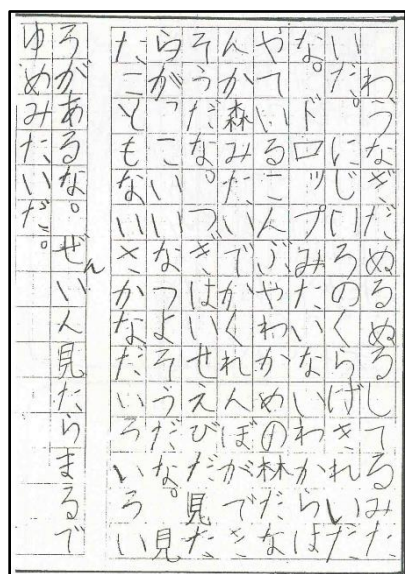 わ、うなぎだぬるぬるしてるみた
いだ。にじいろのくらげきれいだ
な。ドロップみたいないわからは
やているこんぶやわかめの林だな
んか森みたいでかくれんぼができ
そうだな。つぎはいせえびだ見た
らがっこいいなつよそうだな。見
たこともないさかなだいろいろい
ろがあるな。ぜんいん見たらまるで
ゆめみたいだ。